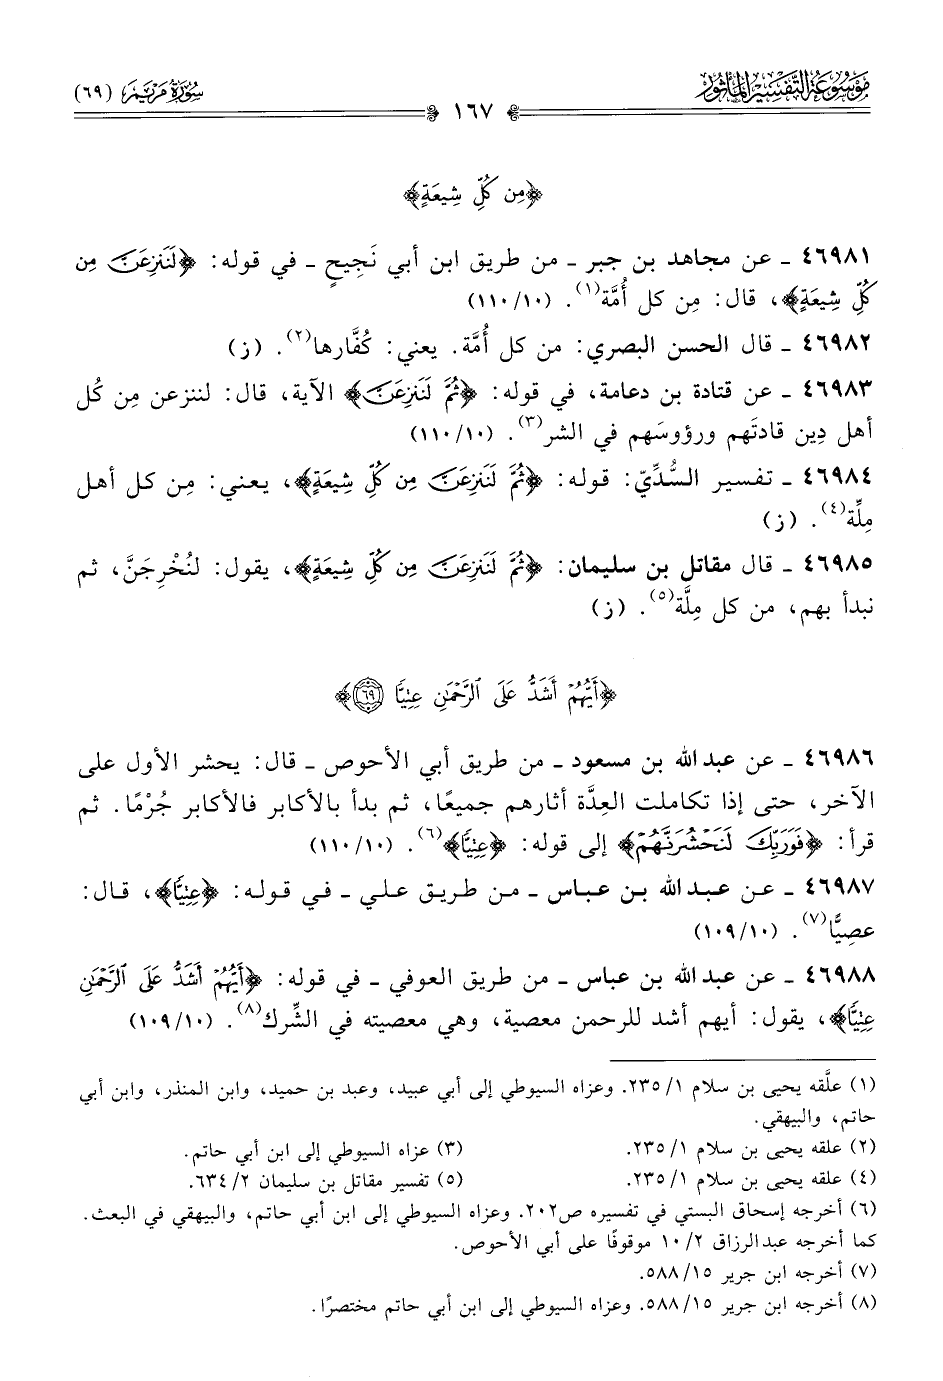 مَوْسُوعَةُ التَّفْسِيرِ المَأْثُورِ
سُورَةُ مَرْيَم (٦٩)
١٦٧
﴿مِن كُلِّ شِيعَةٍ﴾
٤٦٩٨١ ـ عن مجاهد بن جبر ـ من طريق ابن أبي نَجِيحٍ ـ في قوله: ﴿لَنَنزِعَنَّ مِن
كُلِّ شِيعَةٍ﴾، قال: مِن كل أُمَّة(١). (١١٠/١٠)
٤٦٩٨٢ ـ قال الحسن البصري: من كل أُمَّة. يعني: كُفَّارها(٢). (ز)
٤٦٩٨٣ ـ عن قتادة بن دعامة، في قوله: ﴿ثُمَّ لَنَنزِعَنَّ﴾ الآية، قال: لننزعن مِن كُل
أهل دِين قادتَهم ورؤوسَهم في الشر(٣). (١١٠/١٠)
٤٦٩٨٤ ـ تفسير السُّدِّيّ: قوله: ﴿ثُمَّ لَنَنزِعَنَّ مِن كُلِّ شِيعَةٍ﴾، يعني: مِن كل أهل
مِلَّة(٤). (ز)
٤٦٩٨٥ ـ قال مقاتل بن سليمان: ﴿ثُمَّ لَنَنزِعَنَّ مِن كُلِّ شِيعَةٍ﴾، يقول: لنُخْرِجَنَّ، ثم
نبدأ بهم، من كل مِلَّة(٥). (ز)
﴿أَيُّهُمْ أَشَدُّ عَلَى الرَّحْمَٰنِ عِتِيًّا ٦٩﴾
٤٦٩٨٦ ـ عن عبد الله بن مسعود ـ من طريق أبي الأحوص ـ قال: يحشر الأول على
الآخر، حتى إذا تكاملت العِدَّة أثارهم جميعًا، ثم بدأ بالأكابر فالأكابر جُرْمًا. ثم
قرأ: ﴿فَوَرَبِّكَ لَنَحْشُرَنَّهُمْ﴾ إلى قوله: ﴿عِتِيًّا﴾(٦). (١١٠/١٠)
٤٦٩٨٧ ـ عن عبد الله بن عباس ـ من طريق علي ـ في قوله: ﴿عِتِيًّا﴾، قال:
عصِيًّا(٧). (١٠٩/١٠)
٤٦٩٨٨ ـ عن عبد الله بن عباس ـ من طريق العوفي ـ في قوله: ﴿أَيُّهُمْ أَشَدُّ عَلَى الرَّحْمَٰنِ
عِتِيًّا﴾، يقول: أيهم أشد للرحمن معصية، وهي معصيته في الشِّرك(٨). (١٠٩/١٠)
(١) علَّقه يحيى بن سلام ١/ ٢٣٥. وعزاه السيوطي إلى أبي عبيد، وعبد بن حميد، وابن المنذر، وابن أبي
حاتم، والبيهقي.
(٢) علقه يحيى بن سلام ١/ ٢٣٥. (٣) عزاه السيوطي إلى ابن أبي حاتم.
(٤) علقه يحيى بن سلام ١/ ٢٣٥. (٥) تفسير مقاتل بن سليمان ٢/ ٦٣٤.
(٦) أخرجه إسحاق البستي في تفسيره ص٢٠٢. وعزاه السيوطي إلى ابن أبي حاتم، والبيهقي في البعث.
كما أخرجه عبدالرزاق ٢/ ١٠ موقوفًا على أبي الأحوص.
(٧) أخرجه ابن جرير ١٥/ ٥٨٨.
(٨) أخرجه ابن جرير ١٥/ ٥٨٨. وعزاه السيوطي إلى ابن أبي حاتم مختصرًا.